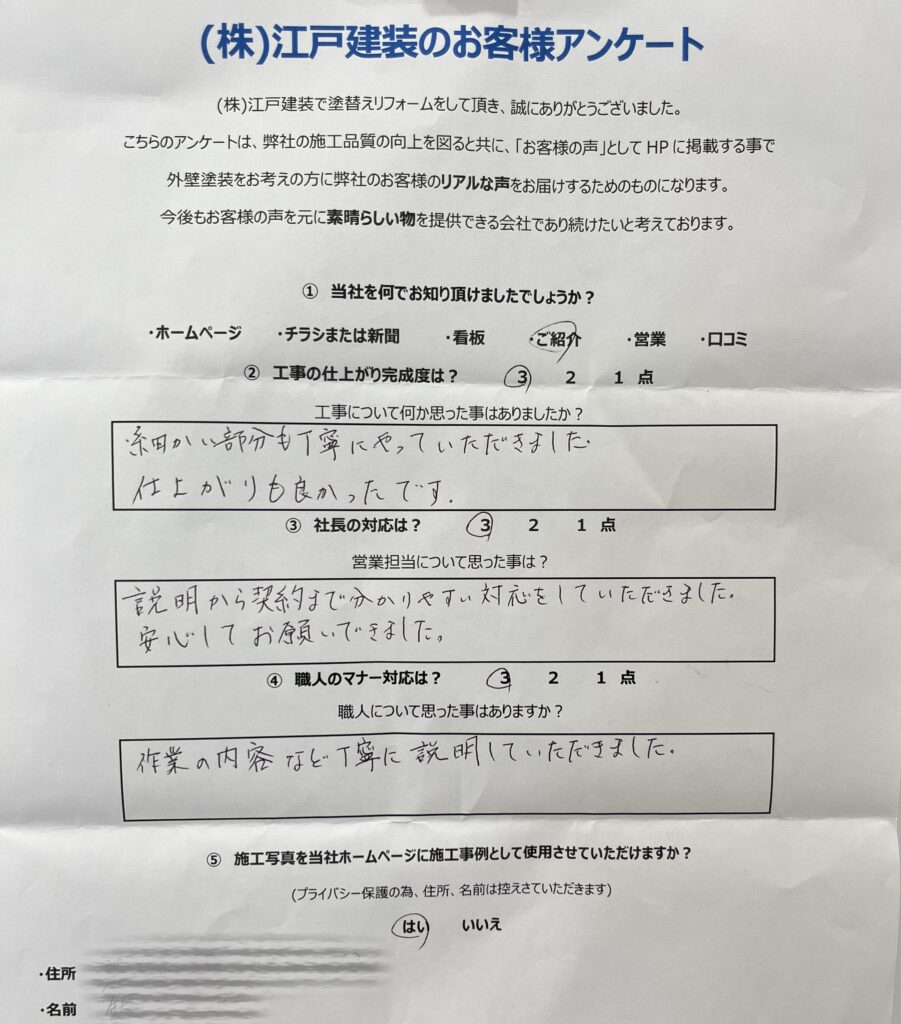 (株)江戸建装のお客様アンケート
(株)江戸建装で塗替えリフォームをして頂き、誠にありがとうございました。
こちらのアンケートは、弊社の施工品質の向上を図ると共に、「お客様の声」として HP に掲載する事で
外壁塗装をお考えの方に弊社のお客様のリアルな声をお届けするためのものになります。
今後もお客様の声を元に素晴らしい物を提供できる会社であり続けたいと考えております。
① 当社を何でお知り頂けましたでしょうか？
・ホームページ ・チラシまたは新聞 ・看板 ・ご紹介 ・営業 ・口コミ
② 工事の仕上がり完成度は？ 3 2 1 点
工事について何か思った事はありましたか？
細かい部分も丁寧にやっていただきました.
仕上がりも良かったです.
③ 社長の対応は？ 3 2 1 点
営業担当について思った事は？
説明から契約まで分かりやすい対応をしていただきました。
安心してお願いできました。
④ 職人のマナー対応は？ 3 2 1 点
職人について思った事はありますか？
作業の内容など丁寧に説明していただきました.
⑤ 施工写真を当社ホームページに施工事例として使用させていただけますか？
(プライバシー保護の為、住所、名前は控えさていただきます)
はい いいえ
・住所
・名前